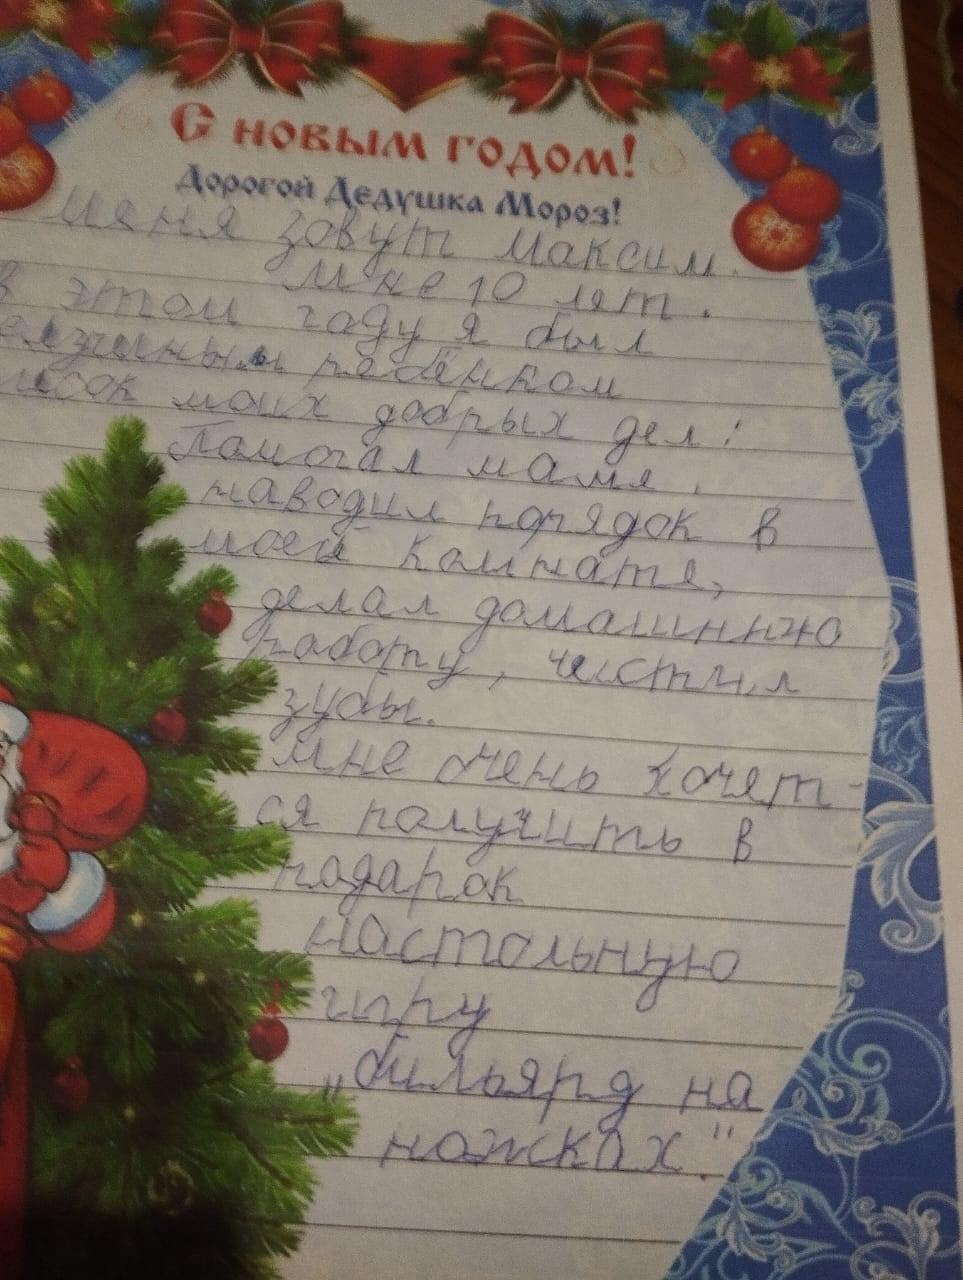 С новым годом!
Дорогой Дедушка Мороз!
Меня зовут Максим.
Мне 10 лет.
в этом году я был
ребёнком
моих добрых дел:
Помогал маме,
наводил порядок в
моей комнате,
делал домашнюю
работу, чистил
зубы.
Мне очень хочет-
ся получить в
подарок
настольную
игру
"бильярд на
ножках".